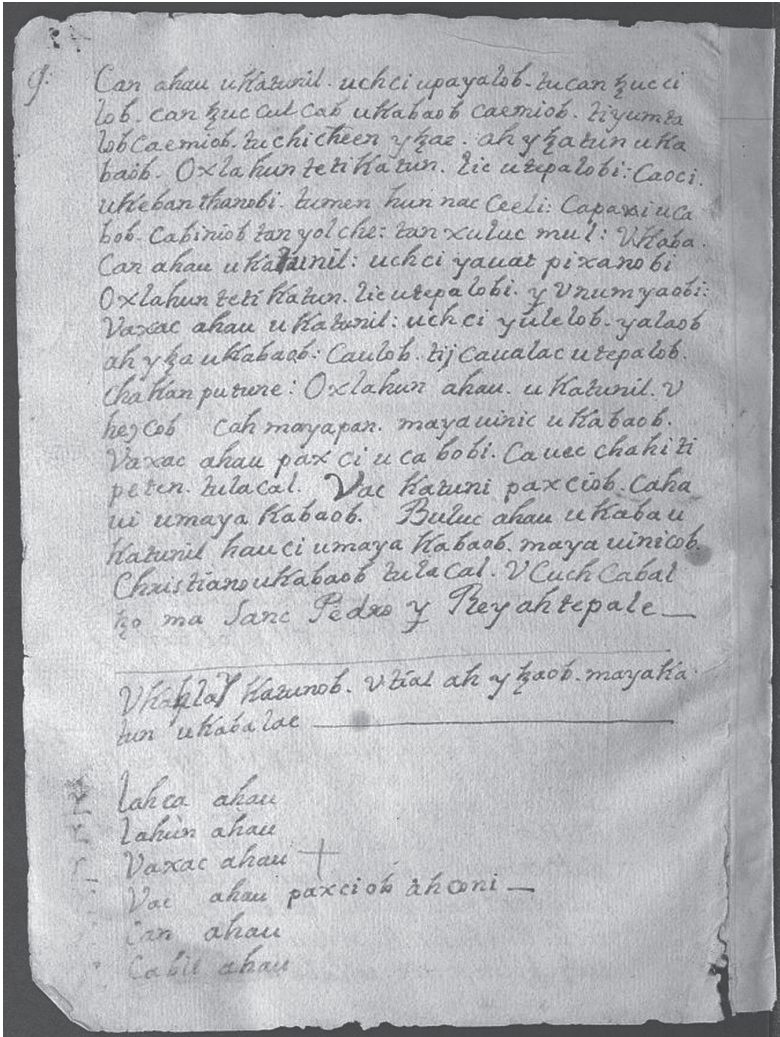 9:
Can ahau u Katunil. uchci upayalob. tu can ꜩucci
lob. can ꜩuc cul cab u Kabaob caemiob. ti yumta
lob Caemiob. tu chicheen y ꜩae. ah y ꜩa tun u Ka
baob. Oxlahun teti Katun. lic u tepalobi: Caoci.
u Keban thanobi. tumen hun nac Ceeli: Capaxi u ca
bob. Cabiniob tan yol che: tan xuluc mul: V Kaba.
Can ahau u Katunil: uchci yauat pixanobi
Oxlahun teti Katun. lic utepalobi. y V num yaobi:
Vaxac ahau u Katunil: uchci yulelob. yalaob
ah y ꜩa u Kabaob: Caulob. tij caualac u tepalob.
chaKan putune: Oxlahun ahau. u Katunil. V
heɔcob cah mayapan. maya uinic u Kabaob.
Vaxac ahau paxci u ca bobi. Ca uec chahi ti
peten. tulacal. Vac Katuni paxciob. Caha
ui u maya Kabaob. Buluc ahau u Kaba u
Katunil hauci u maya Kabaob. maya uinicob.
Christiano u Kabaob tulacal. V Cuch Cabal
ꜩo ma Sanc Pedro y Rey ahtepale
V Kahlay Katunob. V tial ah y ꜩaob. maya Ka
tun u Kabalae
lahca ahau
lahun ahau
Vaxac ahau
Vac ahau paxciob ahconi
Can ahau
Cabil ahau